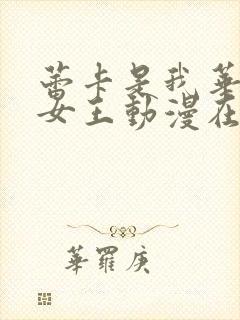 蕾卡是我華
女王動漫在
華羅庚